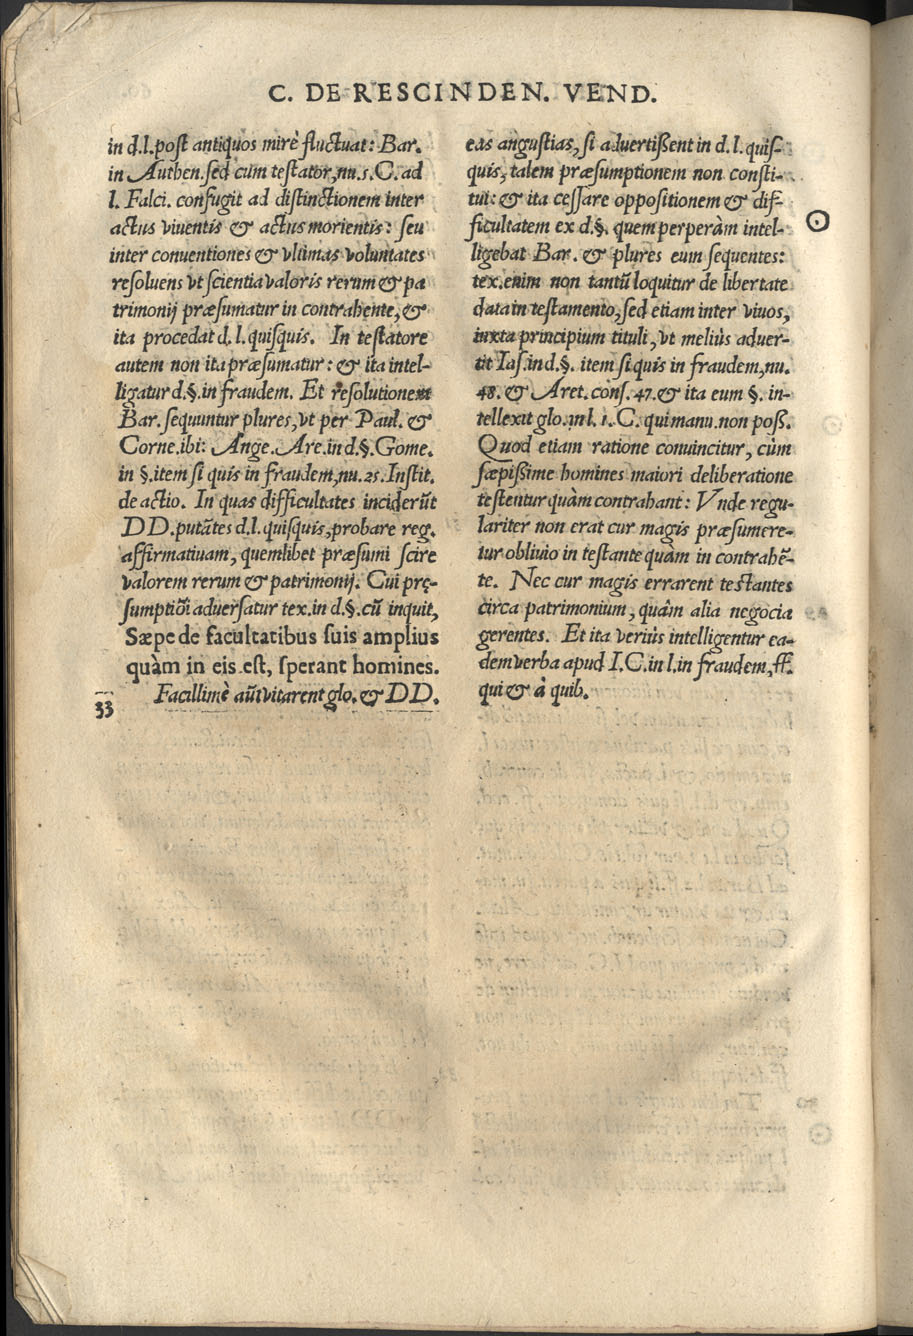 C. DE RESCINDEN. VEND.
in d.l.post antiquos mirè fluctuat: Bar.
in Authen.sed cùm testator,nu.5.C.ad
l. Falci. confugit ad distinctionem inter
actus viuentis & actus morientis: seu
inter conuentiones & vltimas voluntates
resoluens vt scientia valoris rerum & pa
trimonij præsumatur in contrahente, &
ita procedat d.l.quisquis. In testatore
autem non ita præsumatur: & ita intel-
ligatur d.§.in fraudem. Et resolutionem
Bar. sequuntur plures, vt per Paul. &
Corne.ibi: Ange. Are.in d.§.Gome.
in §.item si quis in fraudem,nu.25.Instit.
de actio. In quas difficultates inciderūt
DD.putātes d.l.quisquis,probare reg.
affirmatiuam, quemlibet præsumi scire
valorem rerum & patrimonij. Cui prę-
sumptiōi aduersatur tex.in d.§.cū inquit,
Sæpe de facultatibus suis amplius
quàm in eis est, sperant homines.
33
Facillimè aūt vitarent glo. & DD.
eas angustias, si aduertißent in d.l.quis-
quis, talem præsumptionem non consti-
tui: & ita cessare oppositionem & dif-
ficultatem ex d.§. quem perperàm intel-
ligebat Bar. & plures eum sequentes:
tex.enim non tantū loquitur de libertate
data in testamento, sed etiam inter viuos,
iuxta principium tituli, vt meliùs aduer-
tit Ias.in d.§. item si quis in fraudem,nu.
48. & Aret. cons. 47.& ita eum §. in-
tellexit glo.in l. 1.C. qui manu.non poß.
Quod etiam ratione conuincitur, cùm
sæpißime homines maiori deliberatione
testentur quàm contrahant: Vnde regu-
lariter non erat cur magis præsumere-
tur obliuio in testante quàm in contrahē-
te. Nec cur magis errarent testantes
circa patrimonium, quàm alia negocia
gerentes. Et ita veriùs intelligentur ea-
dem verba apud I.C. in l.in fraudem,ff.
qui & à quib.